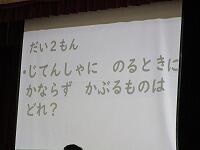 だい２もん
・じてんしゃに　のるときに
かならず　かぶるものは
どれ？